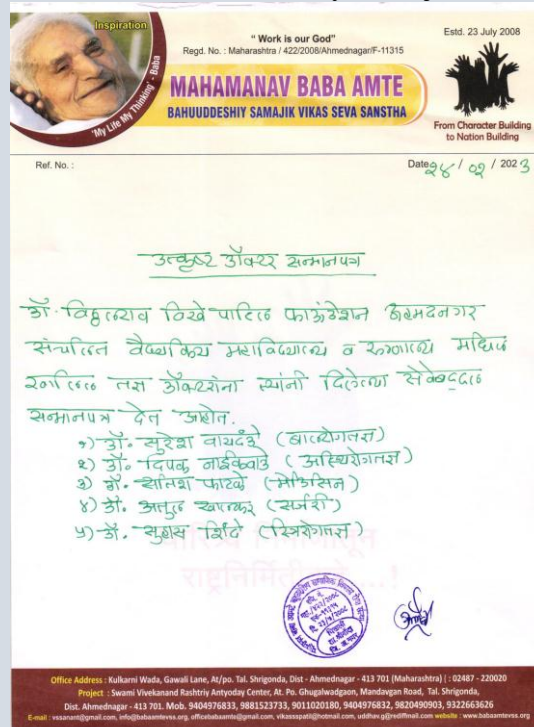 Inspiration
" Work is our God"
Regd. No. : Maharashtra / 422/2008/Ahmednagar/F-11315
Estd. 23 July 2008
MAHAMANAV BABA AMTE
BAHUUDDESHIY SAMAJIK VIKAS SEVA SANSTHA
'My Life My Thinking' - Baba
From Character Building
to Nation Building
Ref. No. :
Date २४ / ०२ / 2023
उत्कृष्ट डॉक्टर सन्मानपत्र
डॉ. विठ्ठलराव विखे पाटिल फाऊंडेशन अहमदनगर
संचलित वैद्यकिय महाविद्यालय व रुग्णालय मधिल
खालिल तज्ञ डॉक्टरांना त्यांनी दिलेल्या सेवेबद्दल
सन्मानपत्र देत आहोत.
१) डॉ. सुरेश वायदंडे (बालरोगतज्ञ)
२) डॉ. दिपक नाईकवाडे (अस्थिरोगतज्ञ)
३) डॉ. सतिश फाटके (मेडिसिन)
४) डॉ. अतुल खालकर (सर्जरी)
५) डॉ. सुहास शिंदे (स्त्रिरोगतज्ञ)
राष्ट्रनिर्मितीकडे ...!
Office Address : Kulkarni Wada, Gawali Lane, At/po. Tal. Shrigonda, Dist - Ahmednagar - 413 701 (Maharashtra) ( : 02487 - 220020
Project : Swami Vivekanand Rashtriy Antyoday Center, At. Po. Ghugalwadgaon, Mandavgan Road, Tal. Shrigonda,
Dist. Ahmednagar - 413 701. Mob. 9404976833, 9881523733, 9011020180, 9404976832, 9820490903, 9322663626
E-mail : vssanant@gmail.com, info@babaamtevss.org, officebabaamte@gmail.com, vikasspatil@hotmail.com, uddhav.g@rediffmail.com website : www.babaamtevss.org